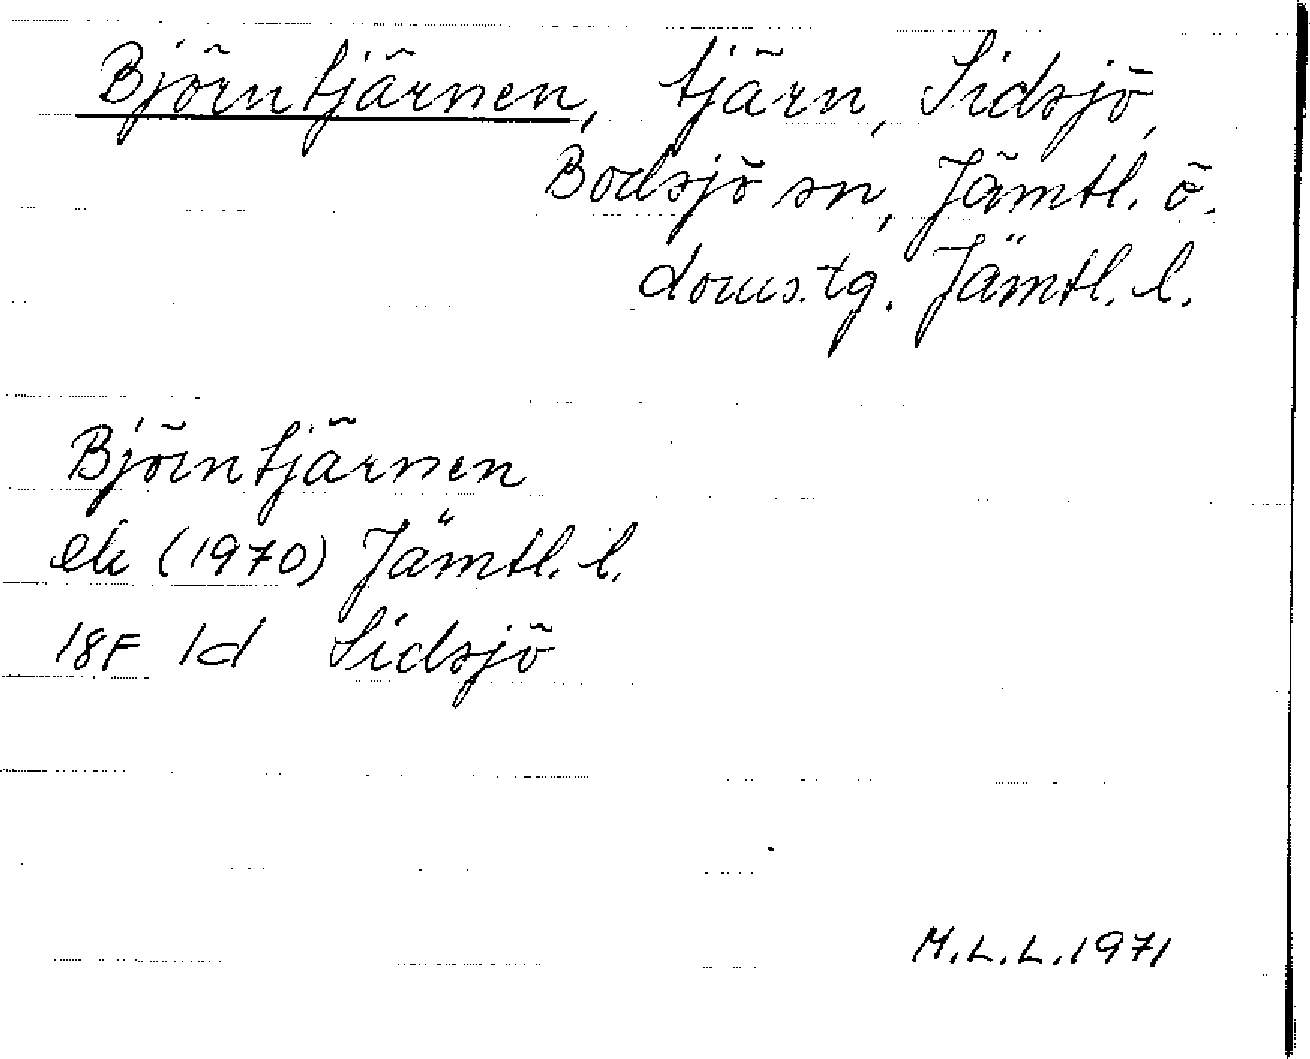 Björntjärnen, tjärn, Sidsjö,
Bodsjö sn, Jämtl. ö.
doms.tg. Jämtl. l.
Björntjärnen
ek (1970) Jämtl. l.
18F 1d Sidsjö
M.L.L. 1971